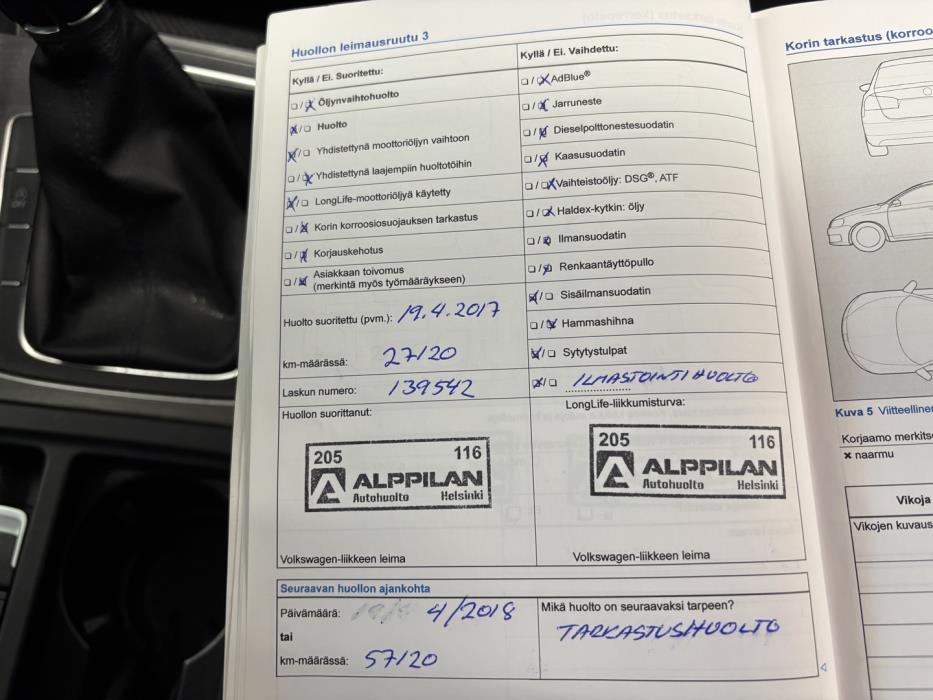 Huollon leimausruutu 3
Kyllä / Ei. Suoritettu:
☐/☒ Öljynvaihtohuolto
☒/☐ Huolto
☒/☐ Yhdistettynä moottoriöljyn vaihtoon
☐/☒ Yhdistettynä laajempiin huoltotöihin
☒/☐ LongLife-moottoriöljyä käytetty
☐/☒ Korin korroosiosuojauksen tarkastus
☐/☒ Korjauskehotus
☐/☒ Asiakkaan toivomus
(merkintä myös työmääräykseen)
Huolto suoritettu (pvm.): 19.4.2017
km-määrässä: 27120
Laskun numero: 139542
Huollon suorittanut:
205 116
ALPPILAN
Autohuolto Helsinki
Volkswagen-liikkeen leima
Kyllä / Ei. Vaihdettu:
☐/☒ AdBlue®
☐/☒ Jarruneste
☐/☒ Dieselpolttonestesuodatin
☐/☒ Kaasusuodatin
☐/☒ Vaihteistoöljy: DSG®, ATF
☐/☒ Haldex-kytkin: öljy
☐/☒ Ilmansuodatin
☐/☒ Renkaantäyttöpullo
☒/☐ Sisäilmansuodatin
☐/☒ Hammashihna
☒/☐ Sytytystulpat
☒/☐ ILMASTOINTIHUOLTO
LongLife-liikkumisturva:
205 116
ALPPILAN
Autohuolto Helsinki
Volkswagen-liikkeen leima
Seuraavan huollon ajankohta
Päivämäärä: 4/2018
tai
km-määrässä: 57120
Mikä huolto on seuraavaksi tarpeen?
TARKASTUSHUOLTO
Korin tarkastus (korroo
Kuva 5 Viitteelline
Korjaamo merkits
× naarmu
Vikoja
Vikojen kuvaus